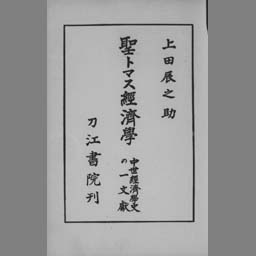 上田辰之助
聖トマス經濟學
中世經濟學史
の一文獻
刀江書院刊